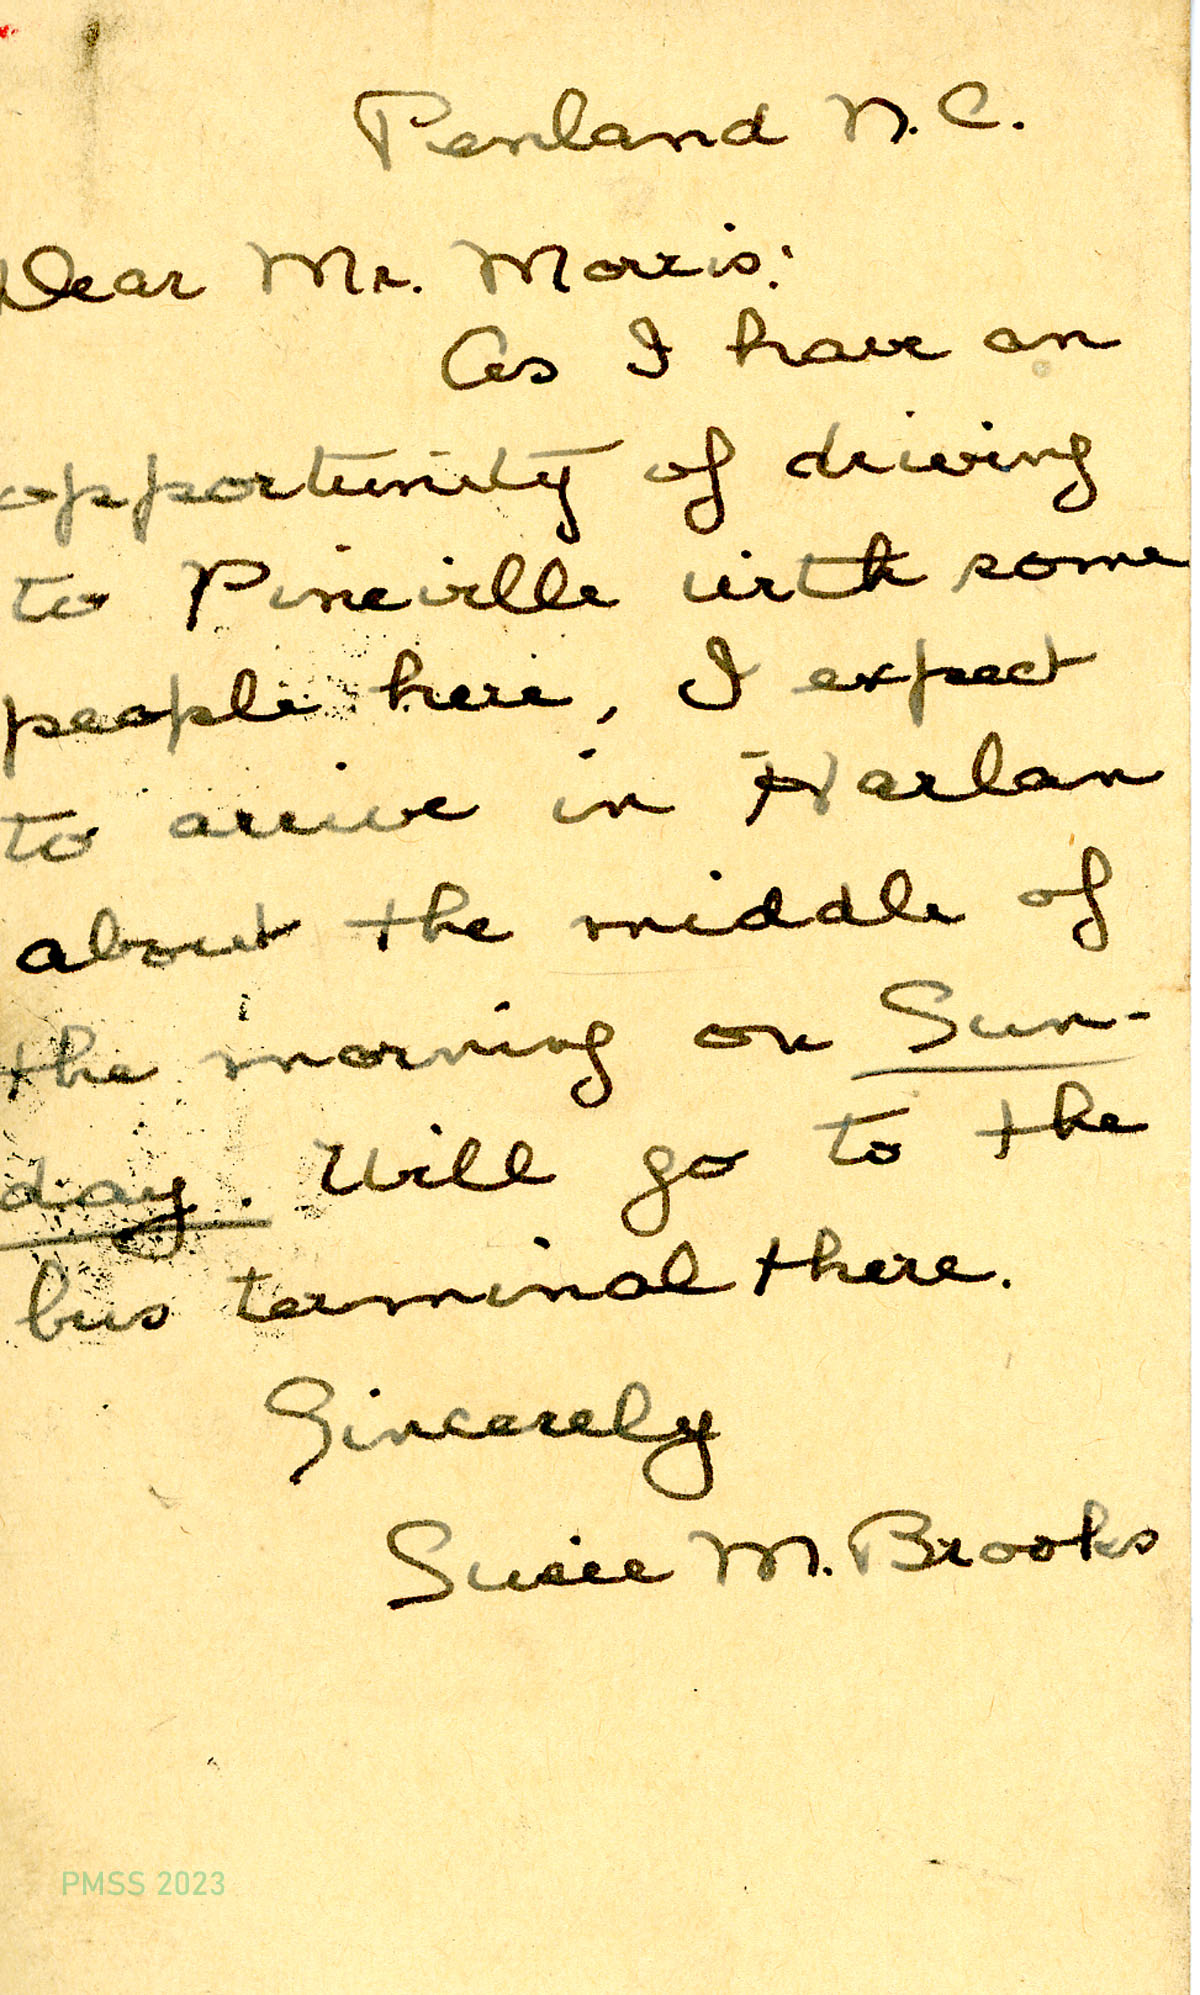 Penland N.C.
Dear Mr. Morris:
As I have an
opportunity of driving
to Pineville with some
people here, I expect
to arrive in Harlan
about the middle of
the morning on Sun-
day. Will go to the
bus terminal there.
Sincerely
Susie M. Brooks
PMSS 2023